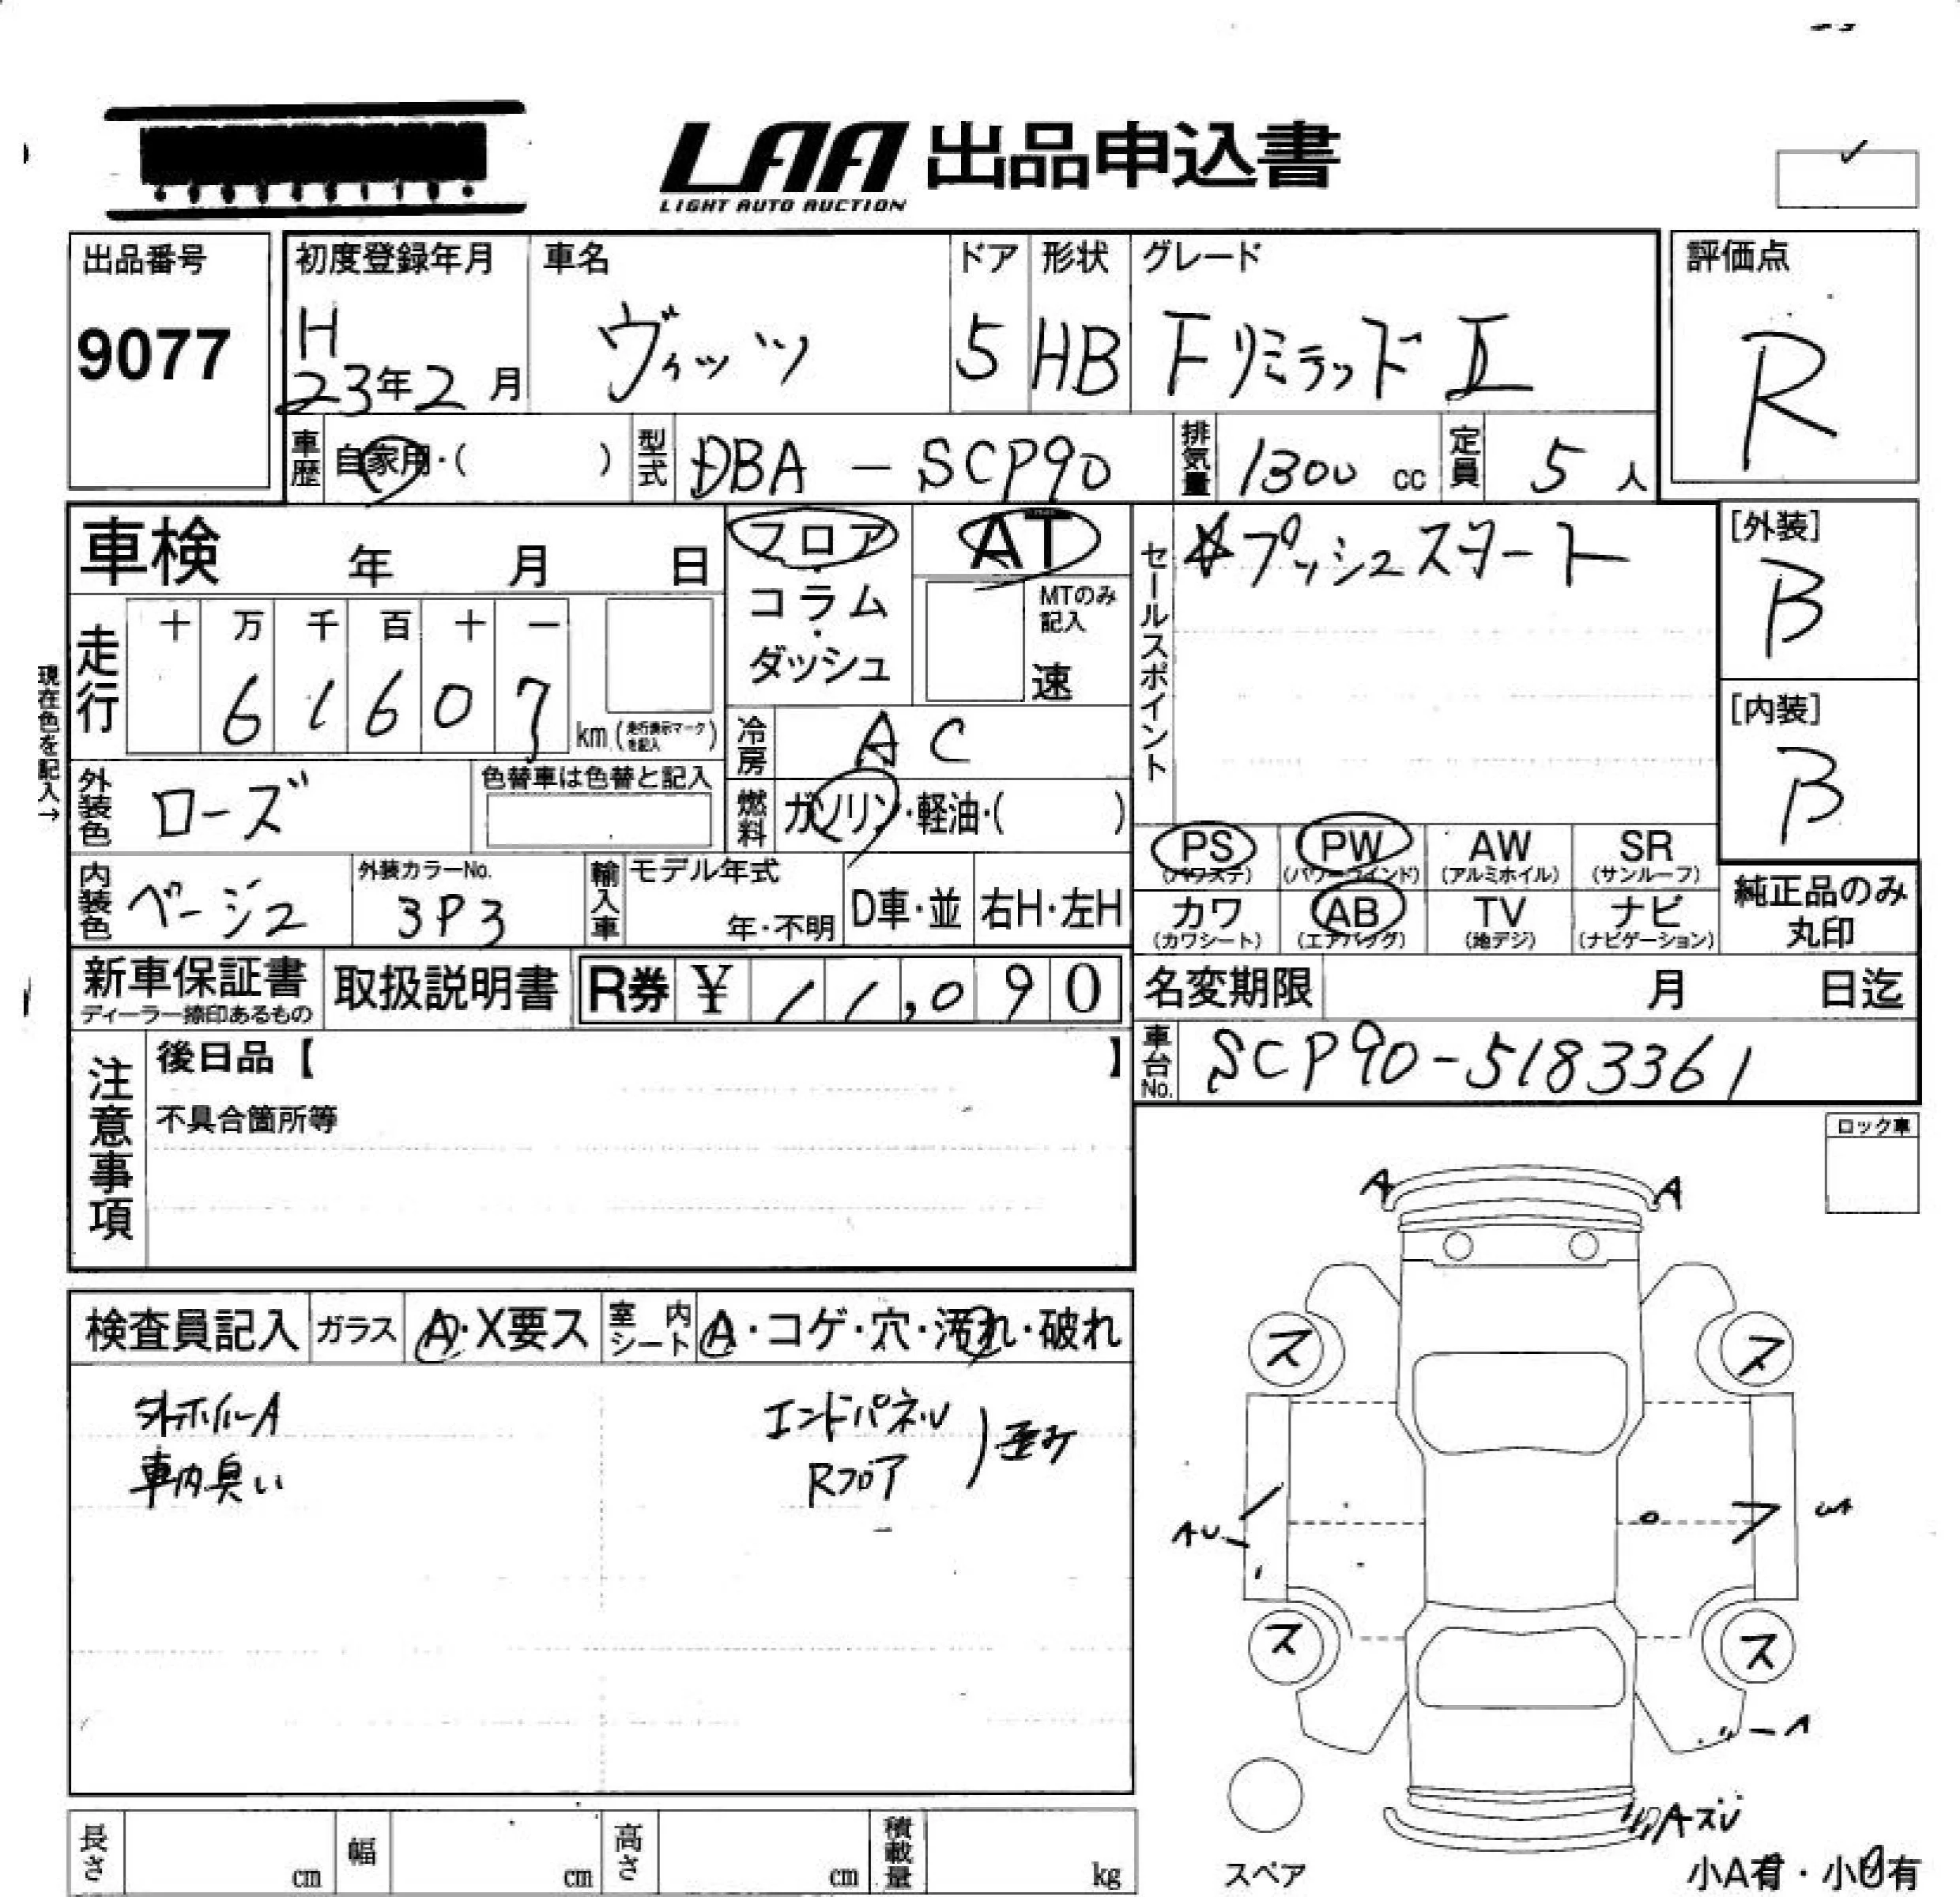 LAA 出品申込書
LIGHT AUTO AUCTION
出品番号
9077
初度登録年月
H
23年2月
車名
ヴィッツ
ドア
5
形状
HB
グレード
FリミテッドⅡ
評価点
R
車歴
自家用・( )
型式
DBA - SCP90
排気量
1300 cc
定員
5 人
車検 年 月 日
フロア
・
コラム
・
ダッシュ
AT
MTのみ
記入
速
セールスポイント
☆プッシュスタート
[外装]
B
[内装]
B
現在色を記入→
走行
十 万 千 百 十 一
6 1 6 0 7
km (走行表示マークを記入)
冷房
AC
外装色
ローズ
色替車は色替と記入
燃料
ガソリン・軽油・( )
PS
(パワステ)
PW
(パワーウインド)
AW
(アルミホイル)
SR
(サンルーフ)
カワ
(カワシート)
AB
(エアバッグ)
TV
(地デジ)
ナビ
(ナビゲーション)
純正品のみ
丸印
内装色
ベージュ
外装カラーNo.
3P3
輸入車
モデル年式
年・不明
D車・並
右H・左H
新車保証書
ディーラー捺印あるもの
取扱説明書
R券 ¥ 11,090
名変期限 月 日迄
車台No.
SCP90-5183361
注意事項
後日品【 】
不具合箇所等
ロック車
検査員記入
ガラス
A・X要ス
室内シート
A・コゲ・穴・汚れ・破れ
外ホイルA
車内臭い
エンドパネル
Rフロア
)歪み
A
A
ス
ス
AU
ス
ス
A
スペア
小A有・小U有
長さ cm
幅 cm
高さ cm
積載量 kg